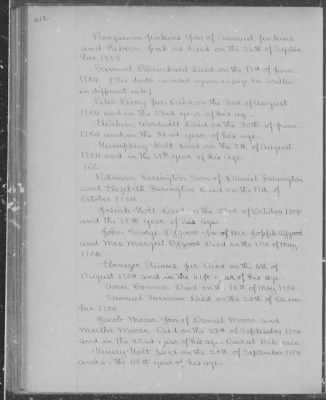 412
Benjamin Jenkins Son of Samuel Jenkins
and Rebeca Jenkins Died on the 20th of Septem
ber 1753.
Samuel Blanchard Died on the 17th of June
1754. [This death recorded again on page 22 written
in different ink.]
Peter Kerry Jur. Died on the 3rd of August
1754 and in the 23rd year of his age.
Abraham Wardwell Died on the 30th of June
1754 and in the 32nd year of his age.
Humphrey Holt Died on the 8th of August
1754 and in the 41st year of his Age.
122.
Putnam Farington Son of Daniel Farington
and Elizabeth Farington Died on the 17th of
October 1754.
Josiah Holt Died on the 22nd of October 1754
and the 75th year of his age.
John George Osgood Son of Mr. Joseph Osgood
and Mrs. Margret Osgood Died on the 17th of May
1754.
Ebenezer Stevens Jur. Died on the 6th of
August 1754 and in the year of his age.
Ann Bonner Died on 12th of May 1755.
Samuel Farnum Died on the 20th of Decem-
ber 1754
Jacob Mooar Son of Daniel Mooar and
Martha Mooar. Died on the 28th of September 1754
and in the 22nd year of his age. Died at
Henery Holt Died on the 25th of September 1754
and in the 45th year of his age.